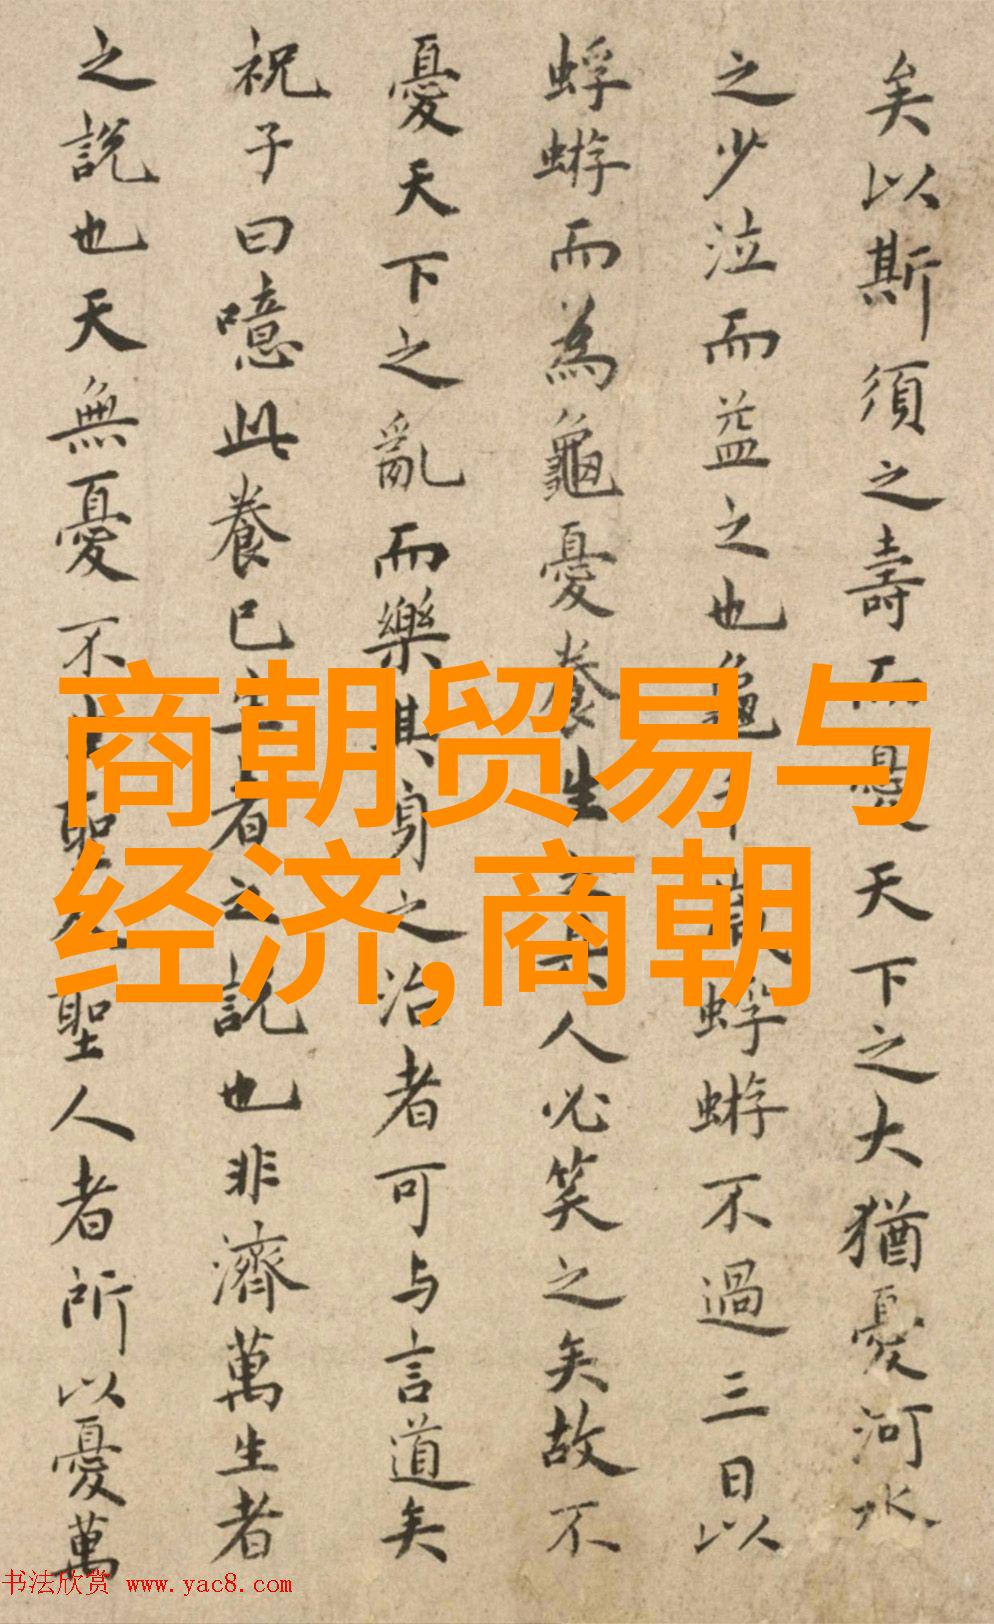 矣以斯須之壽而憂天下之大猶憂河水
之少泣而益之也龜蜉蝣不過三日以
蜉蝣而為龜憂養生之具人必笑之矣故不
憂天下之亂而樂其身之治者可与言道矣
祝子曰噫此養己生者之說也非濟萬生者
之說也天無憂不生聖人聖人者所以憂萬
商朝贸易与
经济,商朝
书法欣赏 www.yac8.com